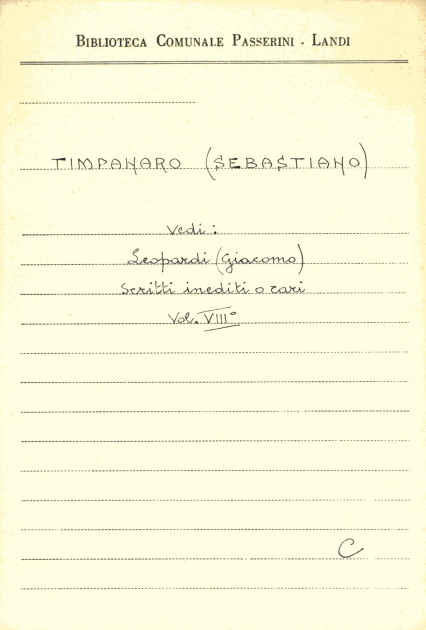 BIBLIOTECA COMUNALE PASSERINI - LANDI
TIMPANARO (SEBASTIANO)
Vedi:
Leopardi (Giacomo)
Scritti inediti o rari
Vol. VIII°
C